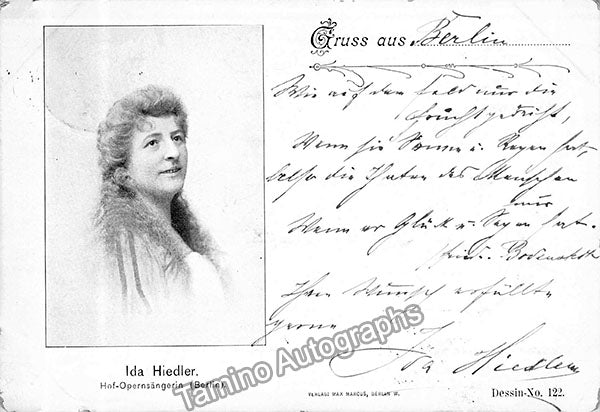 Gruss aus Berlin
Wie auf dem Feld nur die
Frucht gedeiht,
Wenn sie Sonne u. Regen hat,
Also die Thaten des Menschen
nur
Wenn er Glück u. Segen hat.
Friedr. Bodenstedt
Ihren Wunsch erfüllte
gerne
Ida Hiedler
Ida Hiedler.
Hof-Opernsängerin (Berlin).
VERLAG MAX MARCUS, BERLIN W.
Dessin-No. 122.
Tamino Autographs